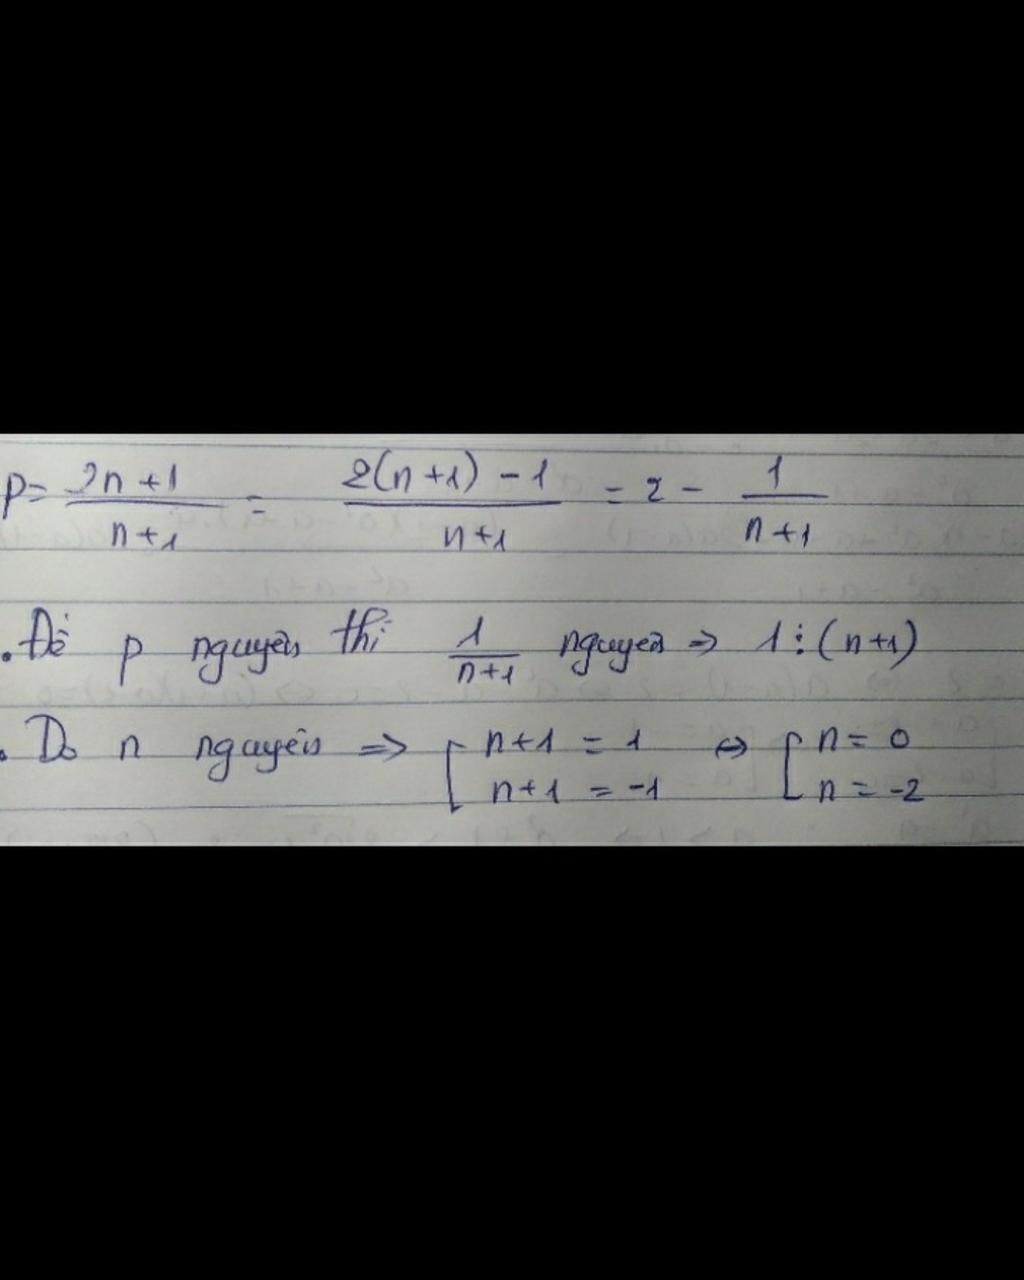 p = \frac{2n+1}{n+1} = \frac{2(n+1)-1}{n+1} = 2 - \frac{1}{n+1}
. Để p nguyên thì \frac{1}{n+1} nguyên ⇒ 1 ⋮ (n+1)
. Do n nguyên ⇒ [ n+1 = 1 ⇔ [ n = 0
n+1 = -1 n = -2